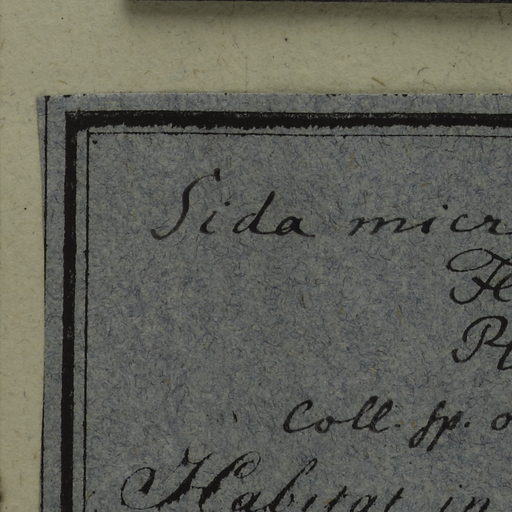 Sida micr
Fe
Coll. sp. o
Habitat in